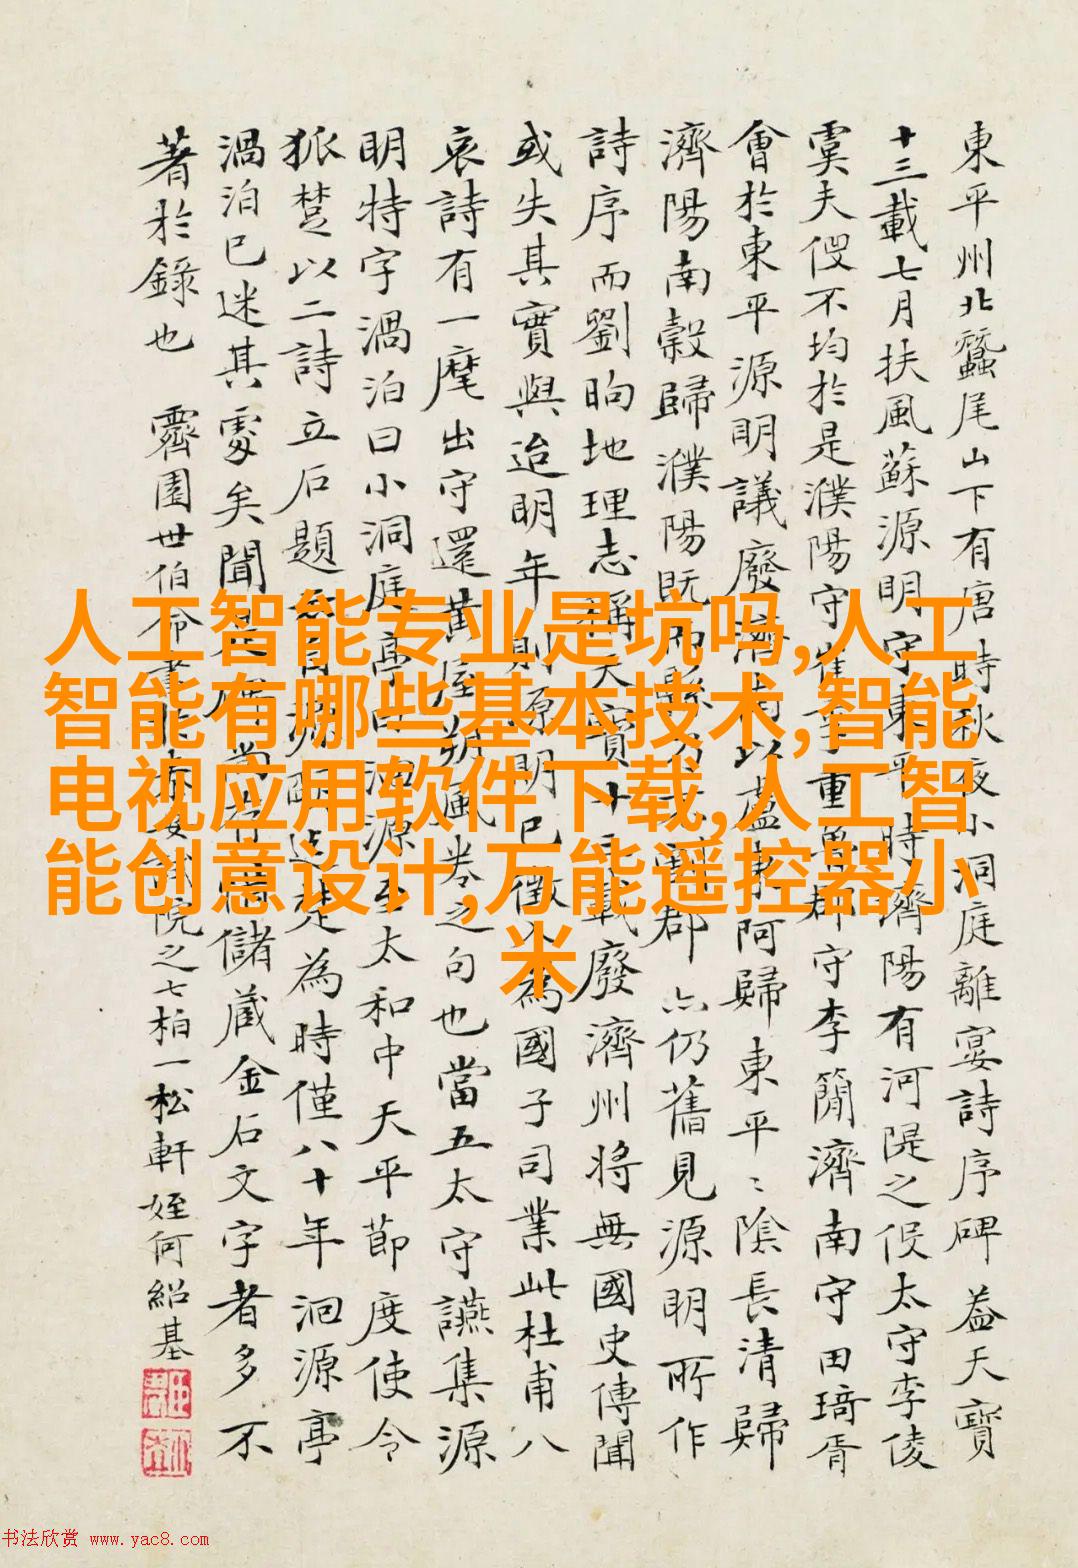 東平州北蠶尾山下有唐時秋夜小洞庭離宴詩序碑 蓋天寶
十三載七月扶風蘇源明守東平時濟陽有河隄之役太守李倰
虞夫伇不均於是濮陽守崔季重魯郡守李蕑濟南守田琦胥
會於東平源明議廢濟南以盧東阿歸東平〻陰長清歸
濟陽南穀歸濮陽既而縣郡亦仍舊見源明所作
詩序而劉昫地理志稱天寶十三載廢濟州將無國史傳聞
或失其實與迨明年則源明已徵為國子司業此杜甫八
哀詩有一麾出守還黃屋朔風卷之句也當五太守讌集源
明特字渦泊曰小洞庭亭曰洄源至太和中天平節度使令
狐楚以二詩立石題楚為時僅八十年洄源亭
渦泊已迷其處矣聞儲藏金石文字者多不
著於錄也 霽園世伯命書院之七柏一松軒 姪何紹基
人工智能专业是坑吗,人工
智能有哪些基本技术,智能
电视应用软件下载,人工智
能创意设计,万能遥控器小
米
书法欣赏 www.yac8.com